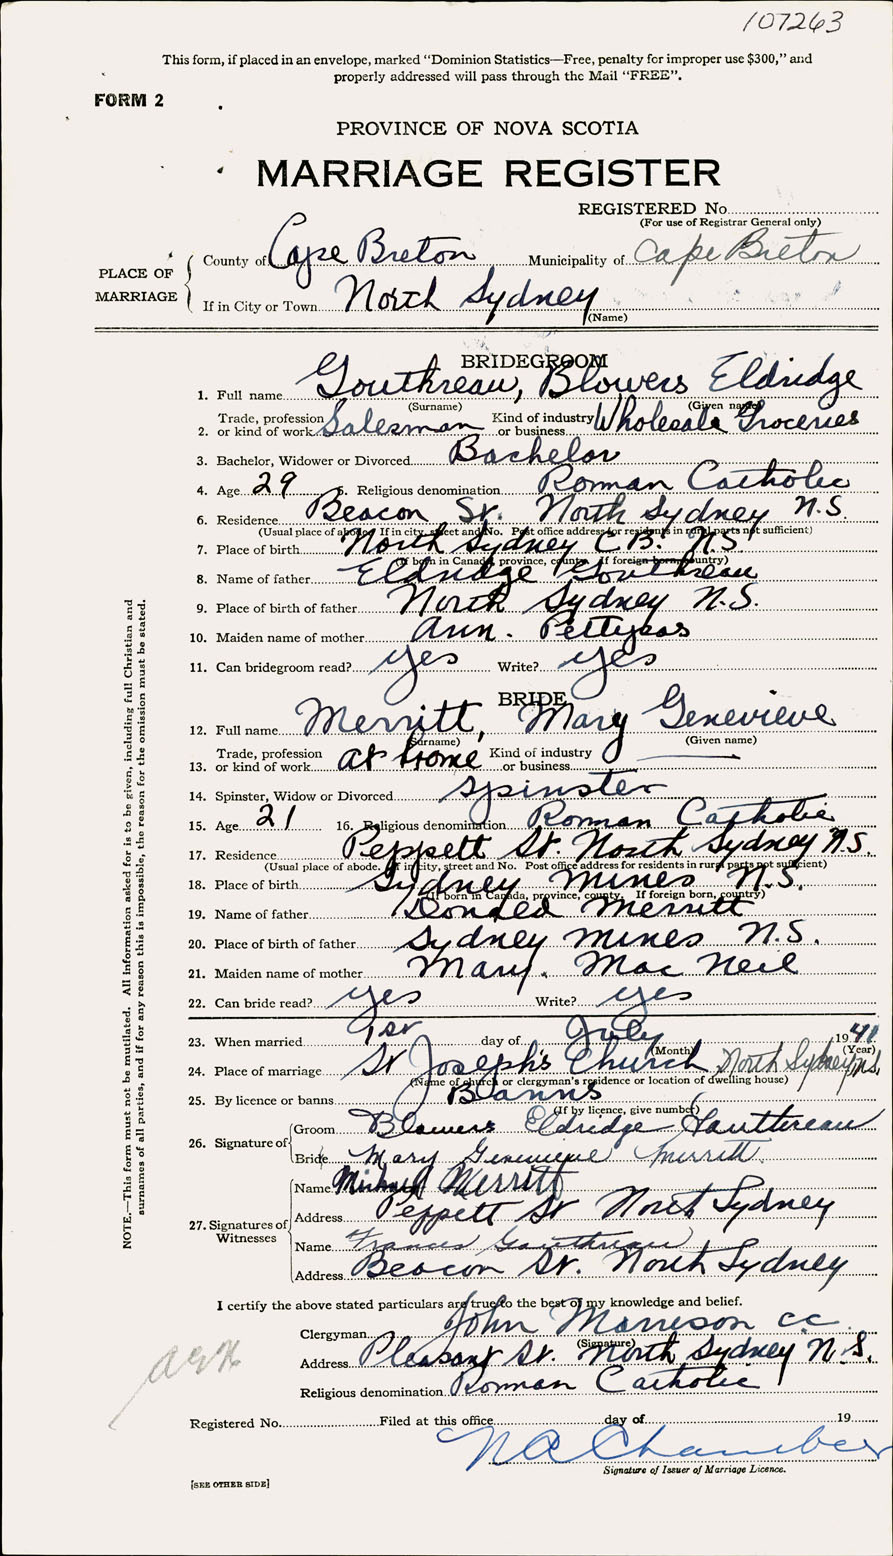 107263
This form, if placed in an envelope, marked "Dominion Statistics—Free, penalty for improper use $300," and
properly addressed will pass through the Mail "FREE".
FORM 2
PROVINCE OF NOVA SCOTIA
MARRIAGE REGISTER
REGISTERED No.
(For use of Registrar General only)
PLACE OF MARRIAGE
County of Cape Breton Municipality of Cape Breton
If in City or Town North Sydney
(Name)
BRIDEGROOM
1. Full name Gouthreau, Blowers Eldridge
(Surname) (Given name)
2. Trade, profession or kind of work Salesman Kind of industry or business Wholesale Groceries
3. Bachelor, Widower or Divorced Bachelor
4. Age 29 5. Religious denomination Roman Catholic
6. Residence Beacon St. North Sydney N.S.
(Usual place of abode. If in city, street and No. Post office address for residents in rural parts not sufficient)
7. Place of birth North Sydney C.B. N.S.
(If born in Canada, province, county. If foreign born, country)
8. Name of father Eldridge Gouthreau
9. Place of birth of father North Sydney N.S.
10. Maiden name of mother Ann. Pettypas
11. Can bridegroom read? yes Write? yes
BRIDE
12. Full name Merritt, Mary Genevieve
(Surname) (Given name)
13. Trade, profession or kind of work at home Kind of industry or business
14. Spinster, Widow or Divorced Spinster
15. Age 21 16. Religious denomination Roman Catholic
17. Residence Peppett St. North Sydney N.S.
(Usual place of abode. If in city, street and No. Post office address for residents in rural parts not sufficient)
18. Place of birth Sydney Mines N.S.
(If born in Canada, province, county. If foreign born, country)
19. Name of father Donald Merritt
20. Place of birth of father Sydney Mines N.S.
21. Maiden name of mother Mary. Mac Neil
22. Can bride read? yes Write? yes
23. When married 1st day of July 1941
(Month) (Year)
24. Place of marriage St Joseph's Church North Sydney, N.S.
(Name of church or clergyman's residence or location of dwelling house)
25. By licence or banns Banns
(If by licence, give number)
26. Signature of
Groom Blowers Eldridge Gauthreau
Bride Mary Genevieve Merritt
27. Signatures of Witnesses
Name Michael Merritt
Address Peppett St North Sydney
Name Frances Gouthreau
Address Beacon St. North Sydney
I certify the above stated particulars are true to the best of my knowledge and belief.
Clergyman John Morrison cc
(Signature)
Address Pleasant St. North Sydney N.S.
Religious denomination Roman Catholic
Registered No. Filed at this office day of 19
N A Chamber
Signature of Issuer of Marriage Licence.
[SEE OTHER SIDE]
NOTE.—This form must not be mutilated. All Information asked for is to be given, including full Christian and
surnames of all parties, and if for any reason this is impossible, the reason for the omission must be stated.